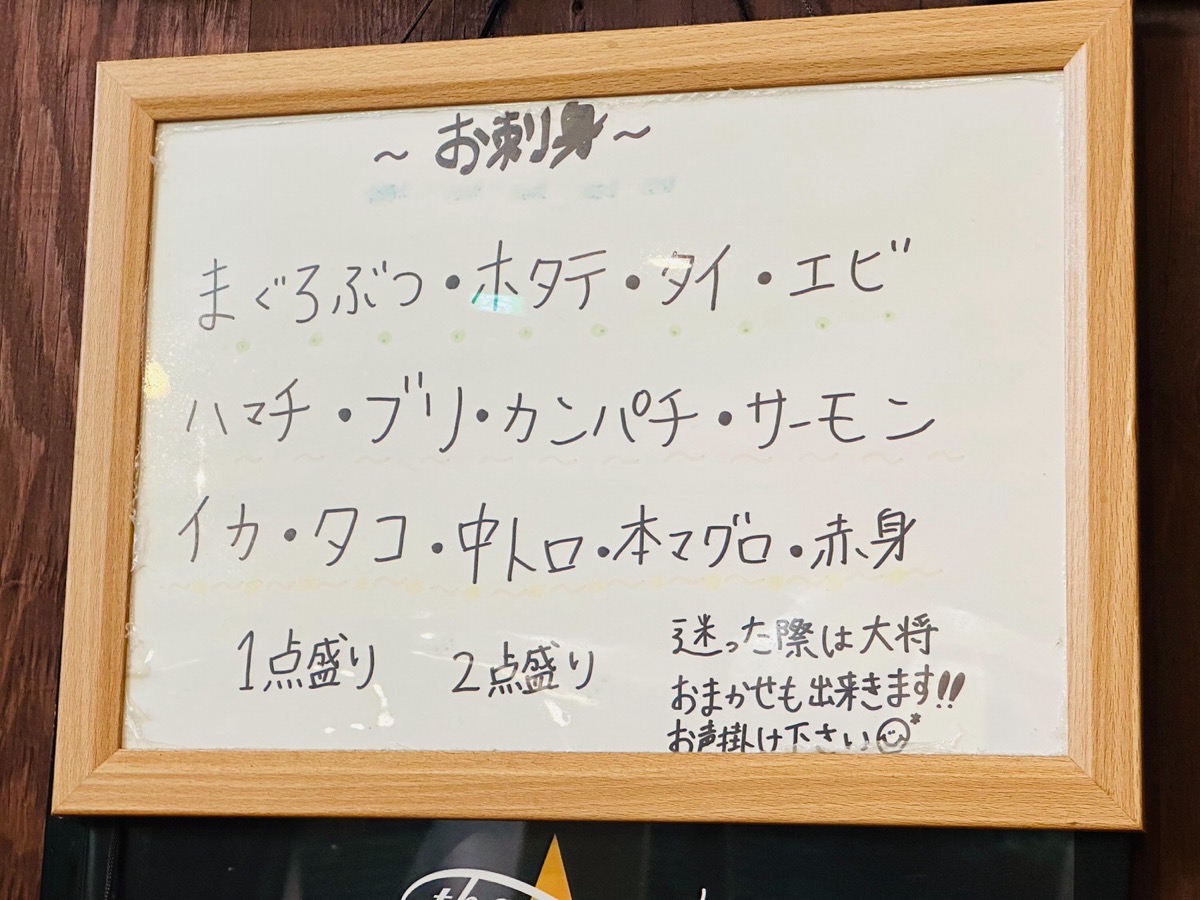 ～お刺身～
まぐろぶつ・ホタテ・タイ・エビ
ハマチ・ブリ・カンパチ・サーモン
イカ・タコ・中トロ・本マグロ・赤身
1点盛り 2点盛り
迷った際は大将
おまかせも出来きます!!
お声掛け下さい
the